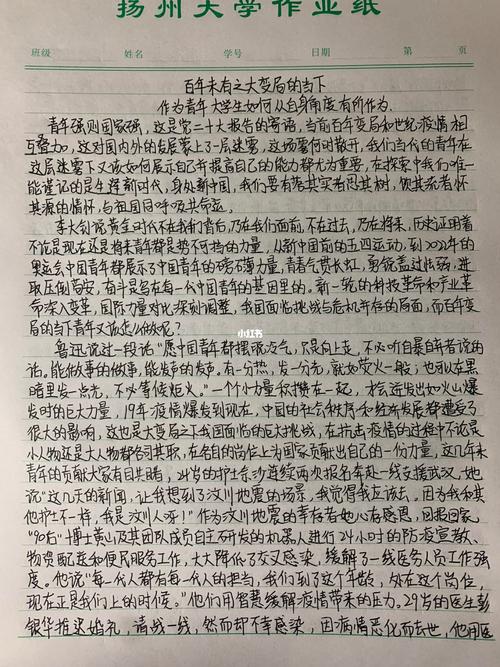 扬州大学作业纸
班级 姓名 学号 日期 第 页
百年未有之大变局的当下
作为青年大学生如何从自身角度有所作为.
青年强则国家强，这是党二十大报告的寄语，当前百年变局和世纪疫情相
互叠加，这对国内外的发展蒙上了一层迷雾，这场雾何时散开，我们当代的青年在
这层迷雾下又该如何展示自己并提高自己的能力都尤为重要，在探索中我们唯一
能谨记的是生逢新时代，身处新中国，我们要有落其实者思其树，饮其流者怀
其源的情怀，与祖国同呼吸共命运。
李大钊说黄金时代不在我们背后，乃在我们面前，不在过去，乃在将来，历史证明着
不论是现在还是将来青年都是势不可挡的力量，从新中国前的五四运动，到2022年的
奥运会中国青年都展示了中国青年的磅礴力量，青春气贯长虹，勇锐盖过怯弱，进
取压倒苟安，奋斗是写在每一个中国青年的基因里的。新一轮的科技革命和产业革
命深入变革，国际力量对比深刻调整，我国面临挑战与危机并存的局面，而百年变
局的当下青年又该怎么做呢？
鲁迅说过一段话“愿中国青年都摆脱冷气，只是向上走，不必听自暴自弃者说的
话。能做事的做事，能发声的发声。有一分热，发一分光，就如萤火一般；也可以在黑
暗里发一点光，不必等候炬火。”一个个小力量积攒在一起，才会迸发出如火山爆
发时的巨大力量，19年疫情爆发到现在，中国的社会秩序和经济发展都遭受了
很大的影响，这也是大变局之下我国面临的巨大挑战，在抗击疫情的过程中不论是
小人物还是大人物都各司其职，在各自的岗位上为国家贡献出自己的一份力量，这几年来
青年的贡献大家有目共睹，24岁的护士佘沙连续两次报名奔赴一线支援武汉，她
说“这几天的新闻，让我想到了汶川地震的场景，我觉得我应该去。因为我和其
他护士不一样，我是汶川人呀！”作为汶川地震的幸存者她心存感恩，回报国家。
“90后”博士黄山及其团队成员自主研发的机器人进行24小时的防疫宣教、
物资配送和便民服务工作，大大降低了交叉感染，缓解了一线医务人员工作强
度。他说“每一代人都有每一代人的担当，我们到了这个年龄，处在这个岗位，
现在正是我们上的时候。”他们用智慧缓解疫情带来的压力。29岁的医生彭
银华推迟婚礼，请战一线，然而却不幸感染，因病情恶化而去世，他用医
小红书